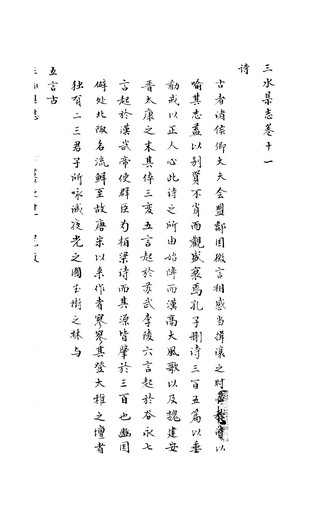 三水縣志卷十一
詩
古者諸侯卿大夫會盟鄰国微言相感當揖讓之时以
喻其志蓋以别賢不肖而觀盛衰焉孔子刪诗三百五篇以垂
勸戒以正人心此诗之所由始降而漢高大風歌以及魏建安
晋太康之末其体三变五言起於苏武李陵六言起於谷永七
言起於漢武帝使群臣为栢梁诗而其源皆肇於三百也豳國
僻处北陬名流鮮至故唐宋以来作者寥寥其登大雅之壇者
独有二三君子所咏诚夜光之國玉樹之林与
五言古